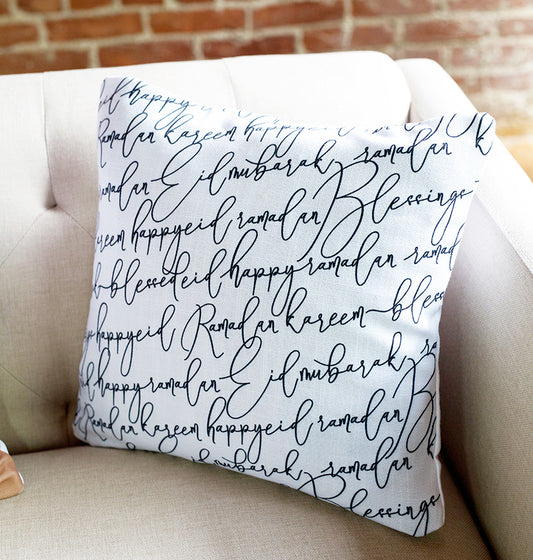 happy
Ramadan kareem happyeid
ramadan Eidmubarak ramadan
kareem happyeid ramadan Blessings
blessedeid happyramadan
happyeid Ramadan kareem bless
happyramadan Eidmubarak ra
Ramadan kareem happyeid ramadan B
Eidmubarak ramadan
Blessings